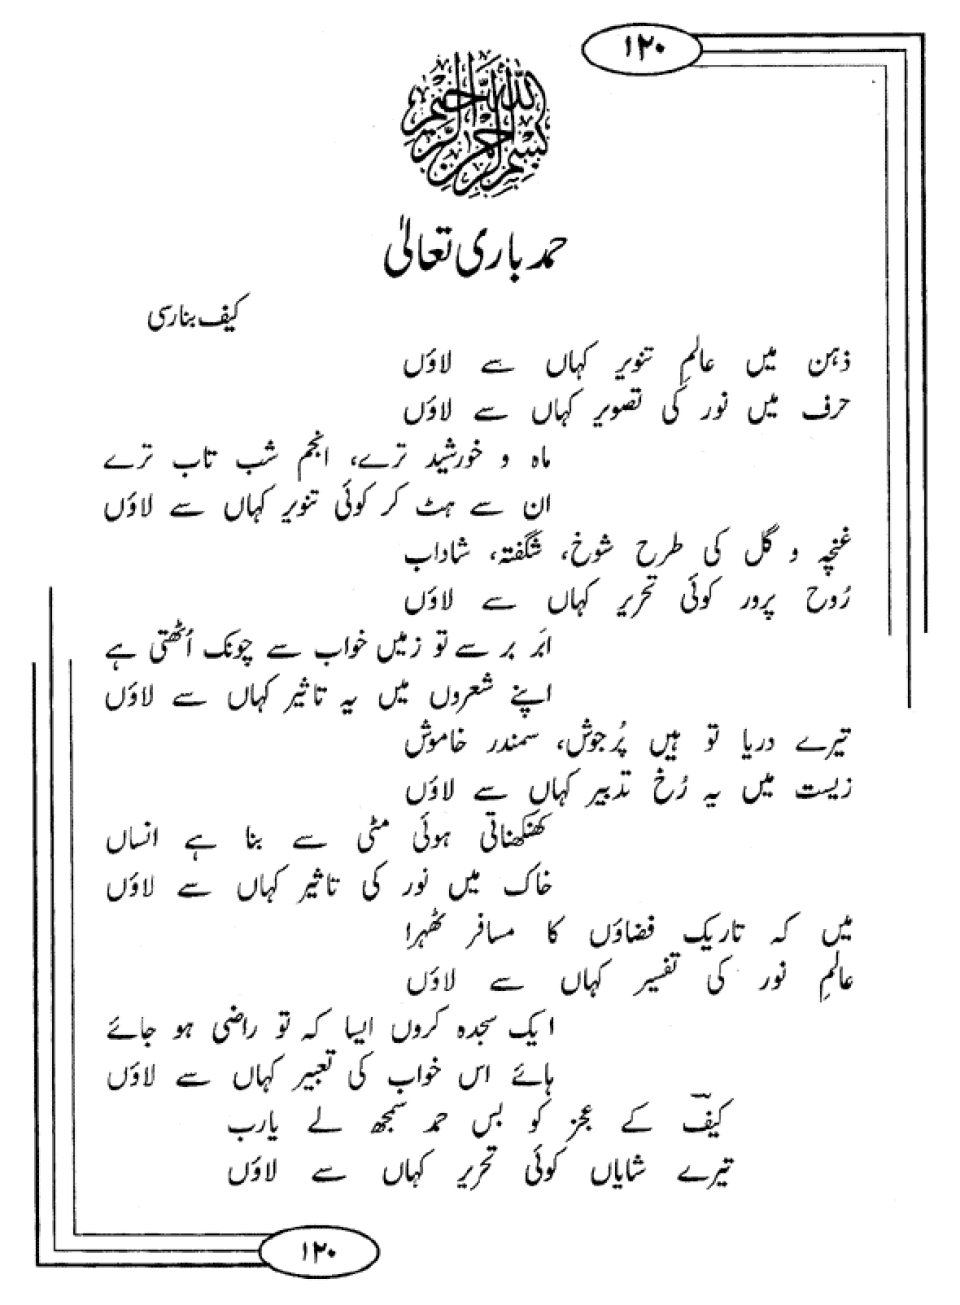 ۱۲۰
بسم الله الرحمن الرحيم
حمد باری تعالیٰ
کیف بنارسی
ذہن میں عالمِ تنویر کہاں سے لاؤں
حرف میں نور کی تصویر کہاں سے لاؤں
ماہ و خورشید ترے، انجم شب تاب ترے
ان سے ہٹ کر کوئی تنویر کہاں سے لاؤں
غنچہ و گل کی طرح شوخ، شگفتہ، شاداب
رُوح پرور کوئی تحریر کہاں سے لاؤں
ابَر برسے تو زمیں خواب سے چونک اُٹھتی ہے
اپنے شعروں میں یہ تاثیر کہاں سے لاؤں
تیرے دریا تو ہیں پُرجوش، سمندر خاموش
زیست میں یہ رُخ تدبیر کہاں سے لاؤں
کھنکھناتی ہوئی مٹی سے بنا ہے انساں
خاک میں نور کی تاثیر کہاں سے لاؤں
میں کہ تاریک فضاؤں کا مسافر ٹھہرا
عالمِ نور کی تفسیر کہاں سے لاؤں
ایک سجدہ کروں ایسا کہ تو راضی ہو جائے
ہائے اس خواب کی تعبیر کہاں سے لاؤں
کیفؔ کے عجز کو بس حمد سمجھ لے یارب
تیرے شایاں کوئی تحریر کہاں سے لاؤں
۱۲۰